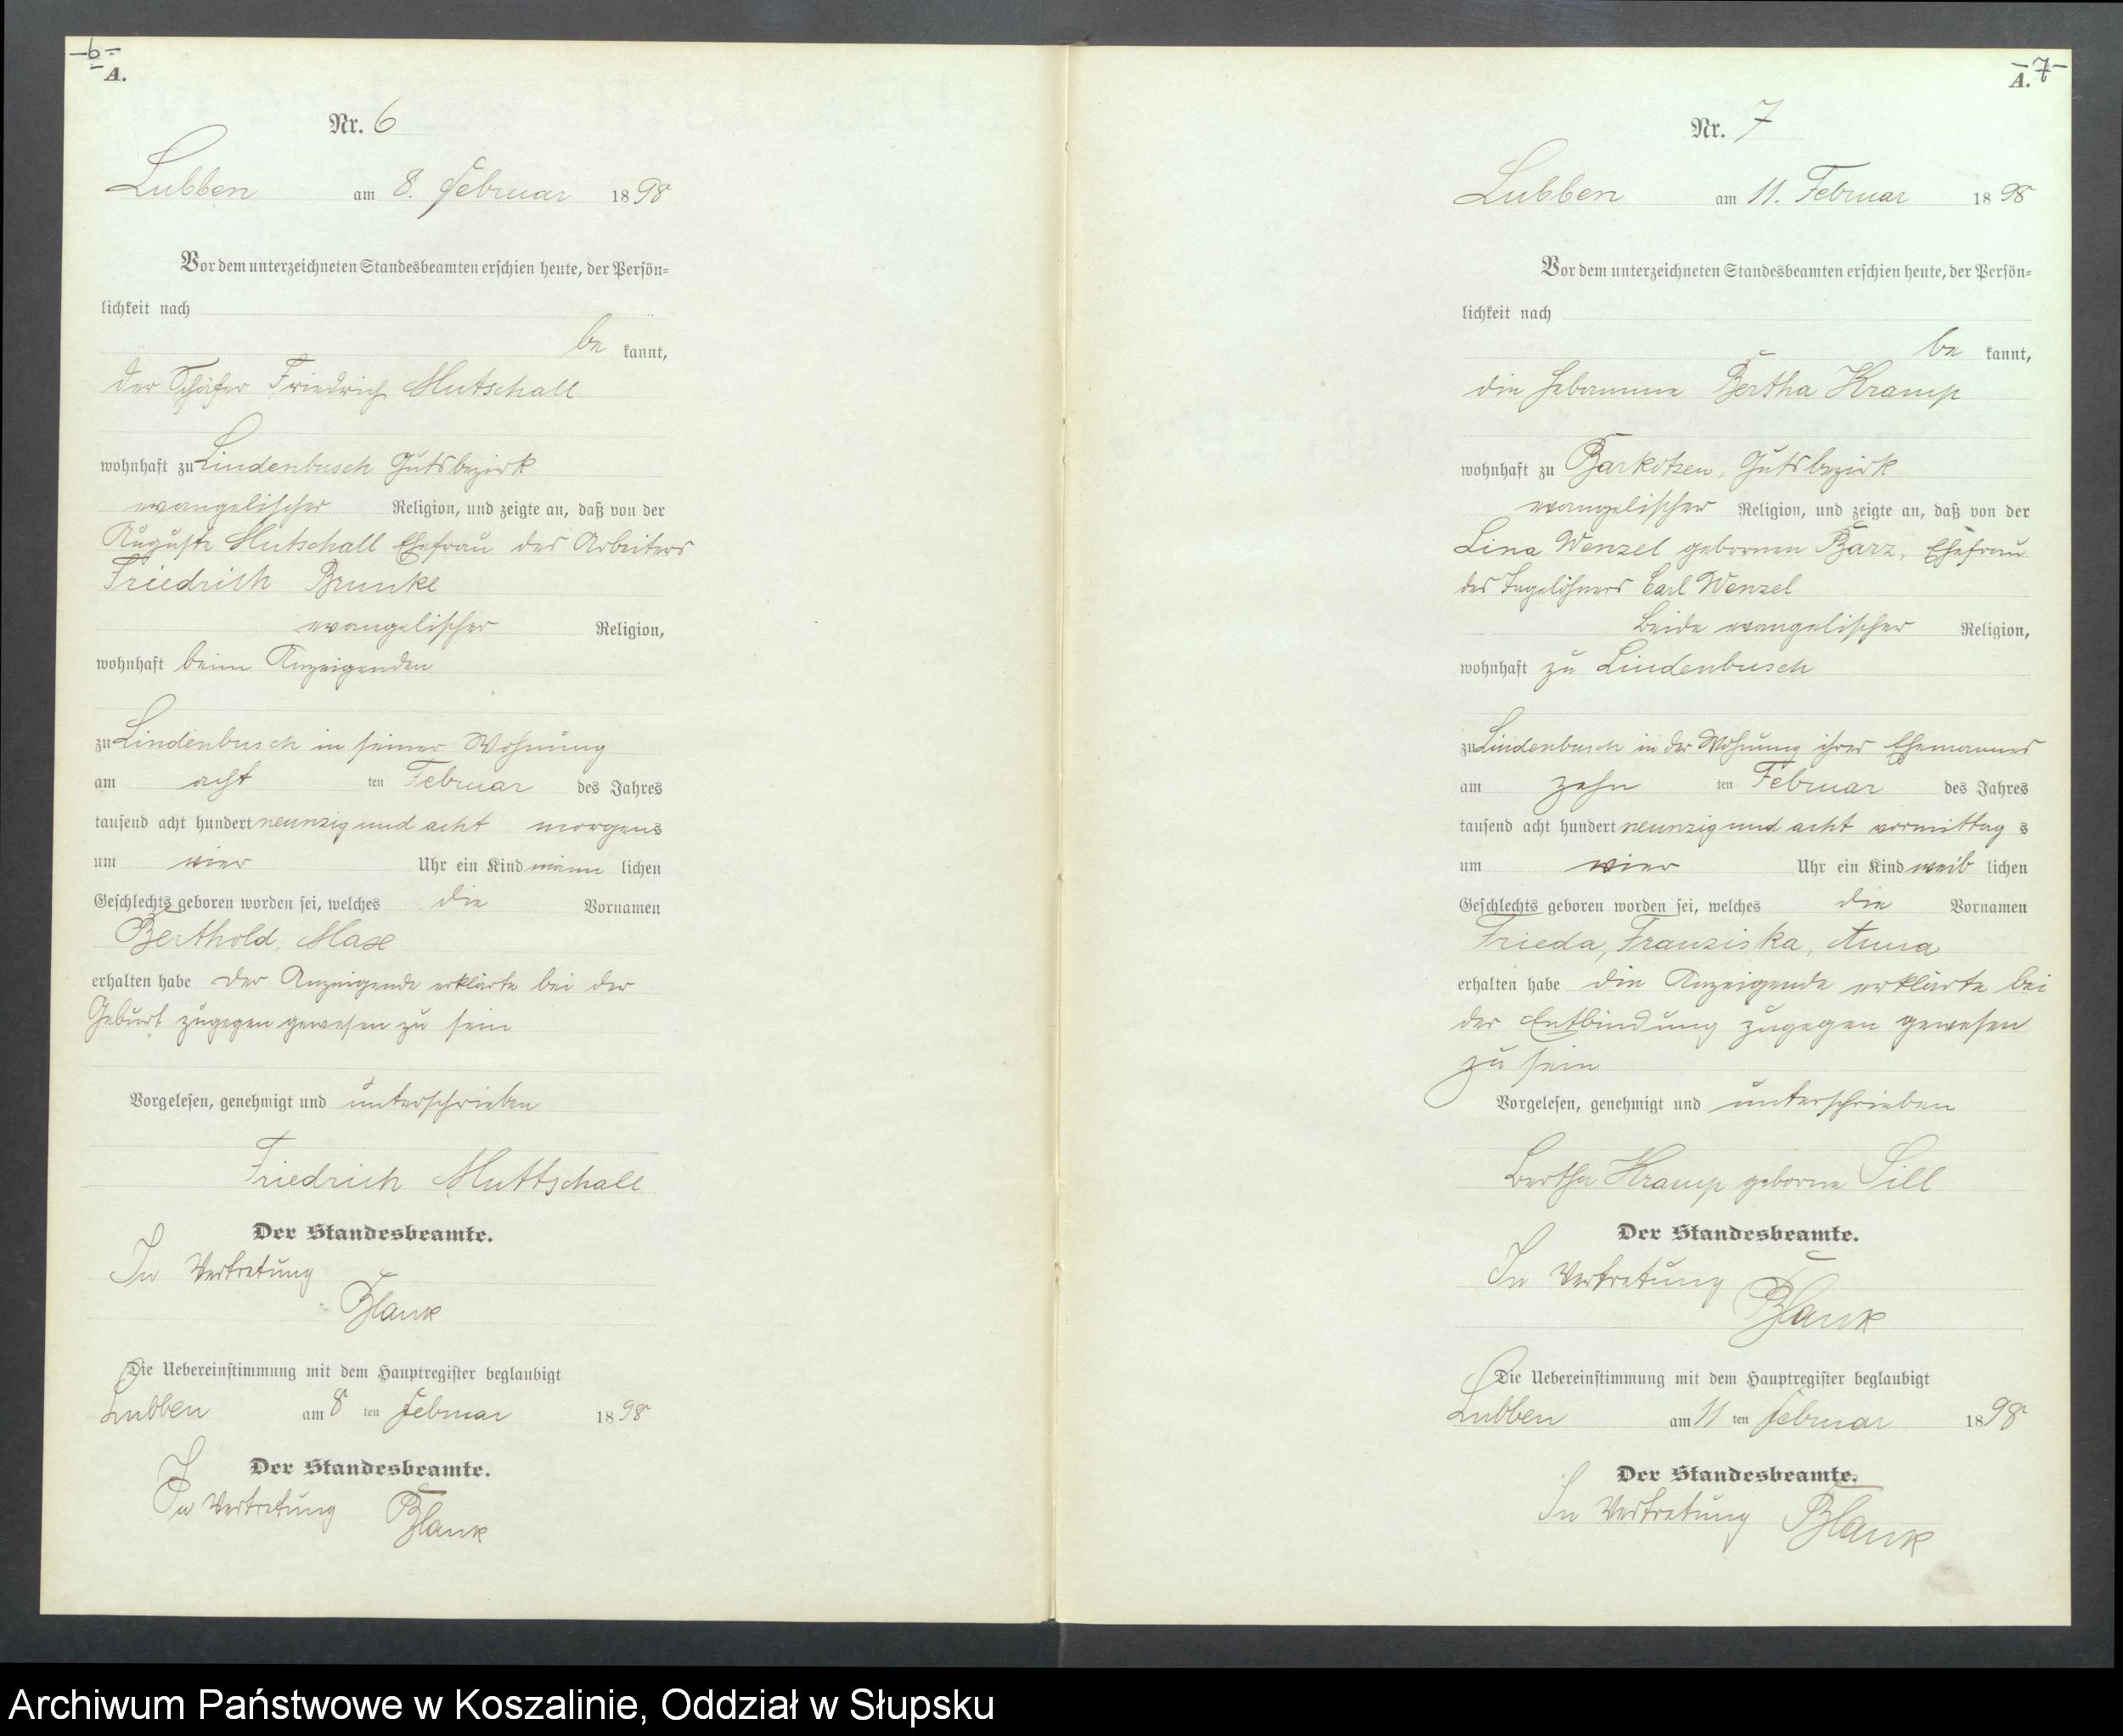 -6-
A.
Nr. 6
Lubben am 8. Februar 1898
Vor dem unterzeichneten Standesbeamten erschien heute, der Persön=
lichkeit nach
be kannt,
der Schäfer Friedrich Mutschall
wohnhaft zu Lindenbusch Gutsbezirk
evangelischer Religion, und zeigte an, daß von der
Auguste Mutschall Ehefrau des Arbeiters
Friedrich Brunke
evangelischer Religion,
wohnhaft beim Anzeigenden
zu Lindenbusch in seiner Wohnung
am acht ten Februar des Jahres
tausend acht hundert neunzig und acht morgens
um vier Uhr ein Kind männ lichen
Geschlechts geboren worden sei, welches die Vornamen
Berthold, Max
erhalten habe der Anzeigende erklärte bei der
Geburt zugegen gewesen zu sein
Vorgelesen, genehmigt und unterschrieben
Friedrich Muttschall
Der Standesbeamte.
In Vertretung
Blank
Die Uebereinstimmung mit dem Hauptregister beglaubigt
Lubben am 8 ten Februar 1898
Der Standesbeamte.
In Vertretung Blank
-7-
A.
Nr. 7
Lubben am 11. Februar 1898
Vor dem unterzeichneten Standesbeamten erschien heute, der Persön=
lichkeit nach
be kannt,
die Hebamme Bertha Kramp
wohnhaft zu Barkotzen, Gutsbezirk
evangelischer Religion, und zeigte an, daß von der
Lina Wenzel gebornen Barz, Ehefrau
des Tagelöhners Carl Wenzel
beide evangelischer Religion,
wohnhaft zu Lindenbusch
zu Lindenbusch in der Wohnung ihres Ehemannes
am zehn ten Februar des Jahres
tausend acht hundert neunzig und acht vormittag s
um vier Uhr ein Kind weib lichen
Geschlechts geboren worden sei, welches die Vornamen
Frieda, Franziska, Anna
erhalten habe die Anzeigende erklärte bei
der Entbindung zugegen gewesen
zu sein
Vorgelesen, genehmigt und unterschrieben
Bertha Kramp geborne Sill
Der Standesbeamte.
In Vertretung
Blank
Die Uebereinstimmung mit dem Hauptregister beglaubigt
Lubben am 11 ten Februar 1898
Der Standesbeamte.
In Vertretung Blank
Archiwum Państwowe w Koszalinie, Oddział w Słupsku